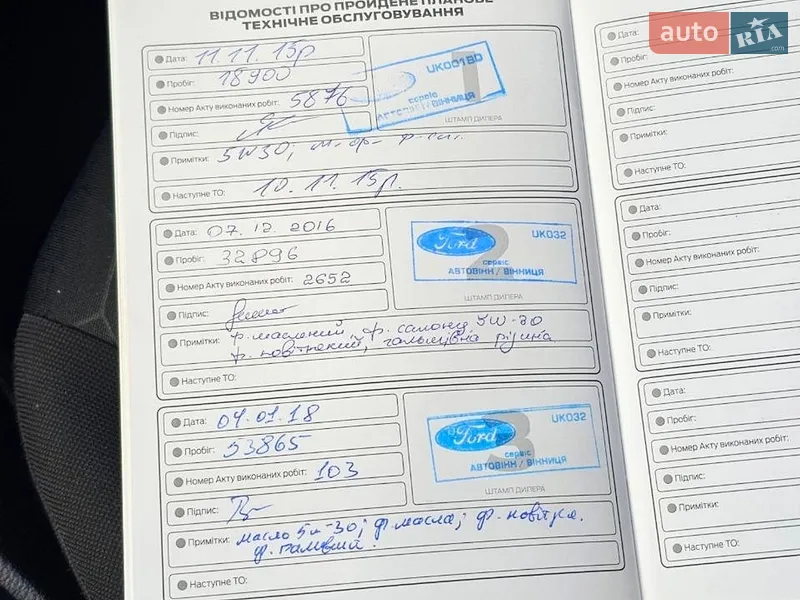 ВІДОМОСТІ ПРО ПРОЙДЕНЕ ПЛАНОВЕ
ТЕХНІЧНЕ ОБСЛУГОВУВАННЯ
Дата: 11.11.15р
Пробіг: 18900
Номер Акту виконаних робіт: 5876
Підпис:
Примітки: 5W30;
Наступне ТО: 10.11.15р.
1
UK001BD
сервіс
АВТОВІНН / ВІННИЦЯ
ШТАМП ДИЛЕРА
Дата: 07.12.2016
Пробіг: 32896
Номер Акту виконаних робіт: 2652
Підпис:
Примітки: ф. масляний, ф. салону, 5W-30
ф. повітряний, гальмівна рідина
Наступне ТО:
2
Ford
UK032
сервіс
АВТОВІНН / ВІННИЦЯ
ШТАМП ДИЛЕРА
Дата: 04.01.18
Пробіг: 53865
Номер Акту виконаних робіт: 103
Підпис:
Примітки: масло 5w-30; ф. масла; ф. повітря.
ф. паливний.
Наступне ТО:
3
Ford
UK032
сервіс
АВТОВІНН / ВІННИЦЯ
ШТАМП ДИЛЕРА
Дата:
Пробіг:
Номер Акту виконаних робіт:
Підпис:
Примітки:
Наступне ТО:
Дата:
Пробіг:
Номер Акту виконаних робіт:
Підпис:
Примітки:
Наступне ТО:
Дата:
Пробіг:
Номер Акту виконаних робіт:
Підпис:
Примітки:
Наступне ТО:
auto RIA
.com